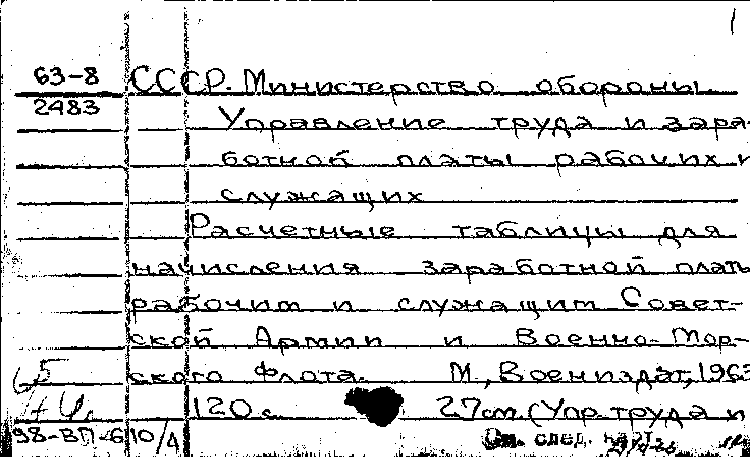 1
63-8 СССР. Министерство обороны
2483 Управление труда и зара-
ботной платы рабочих и
служащих
Расчетные таблицы для
начисления заработной платы
рабочим и служащим Совет-
ской Армии и Военно-Мор-
ского Флота. М., Воениздат, 1963
120 с. 27 см. (Упр. труда и
98-ВП-6 10/4 См. след. карт.